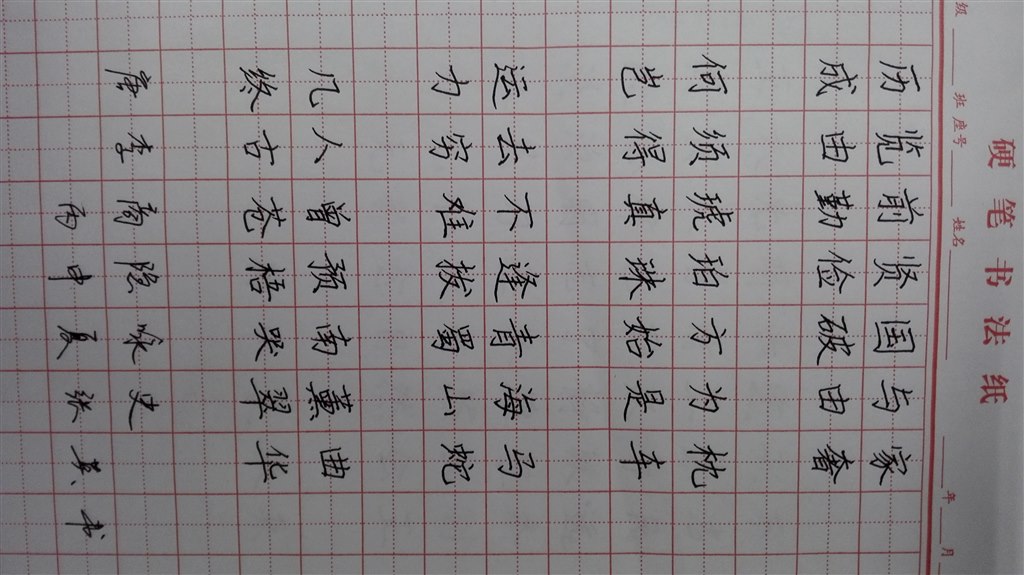 硬笔书法纸
级 班 座号 姓名 年 月
历览前贤国与家
成由勤俭破由奢
何须琥珀方为枕
岂得真珠始是车
运去不逢青海马
力穷难拔蜀山蛇
几人曾预南薰曲
终古苍梧哭翠华
唐李商隐咏史
丙申夏张英书